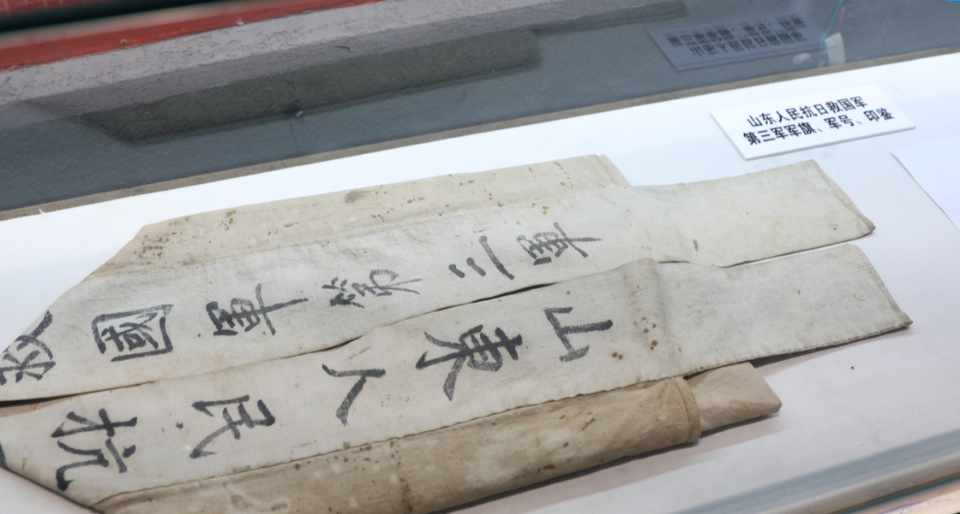 山东人民抗日救国军
第三军军旗、军号、印鉴
山東人民抗
救國軍第三軍